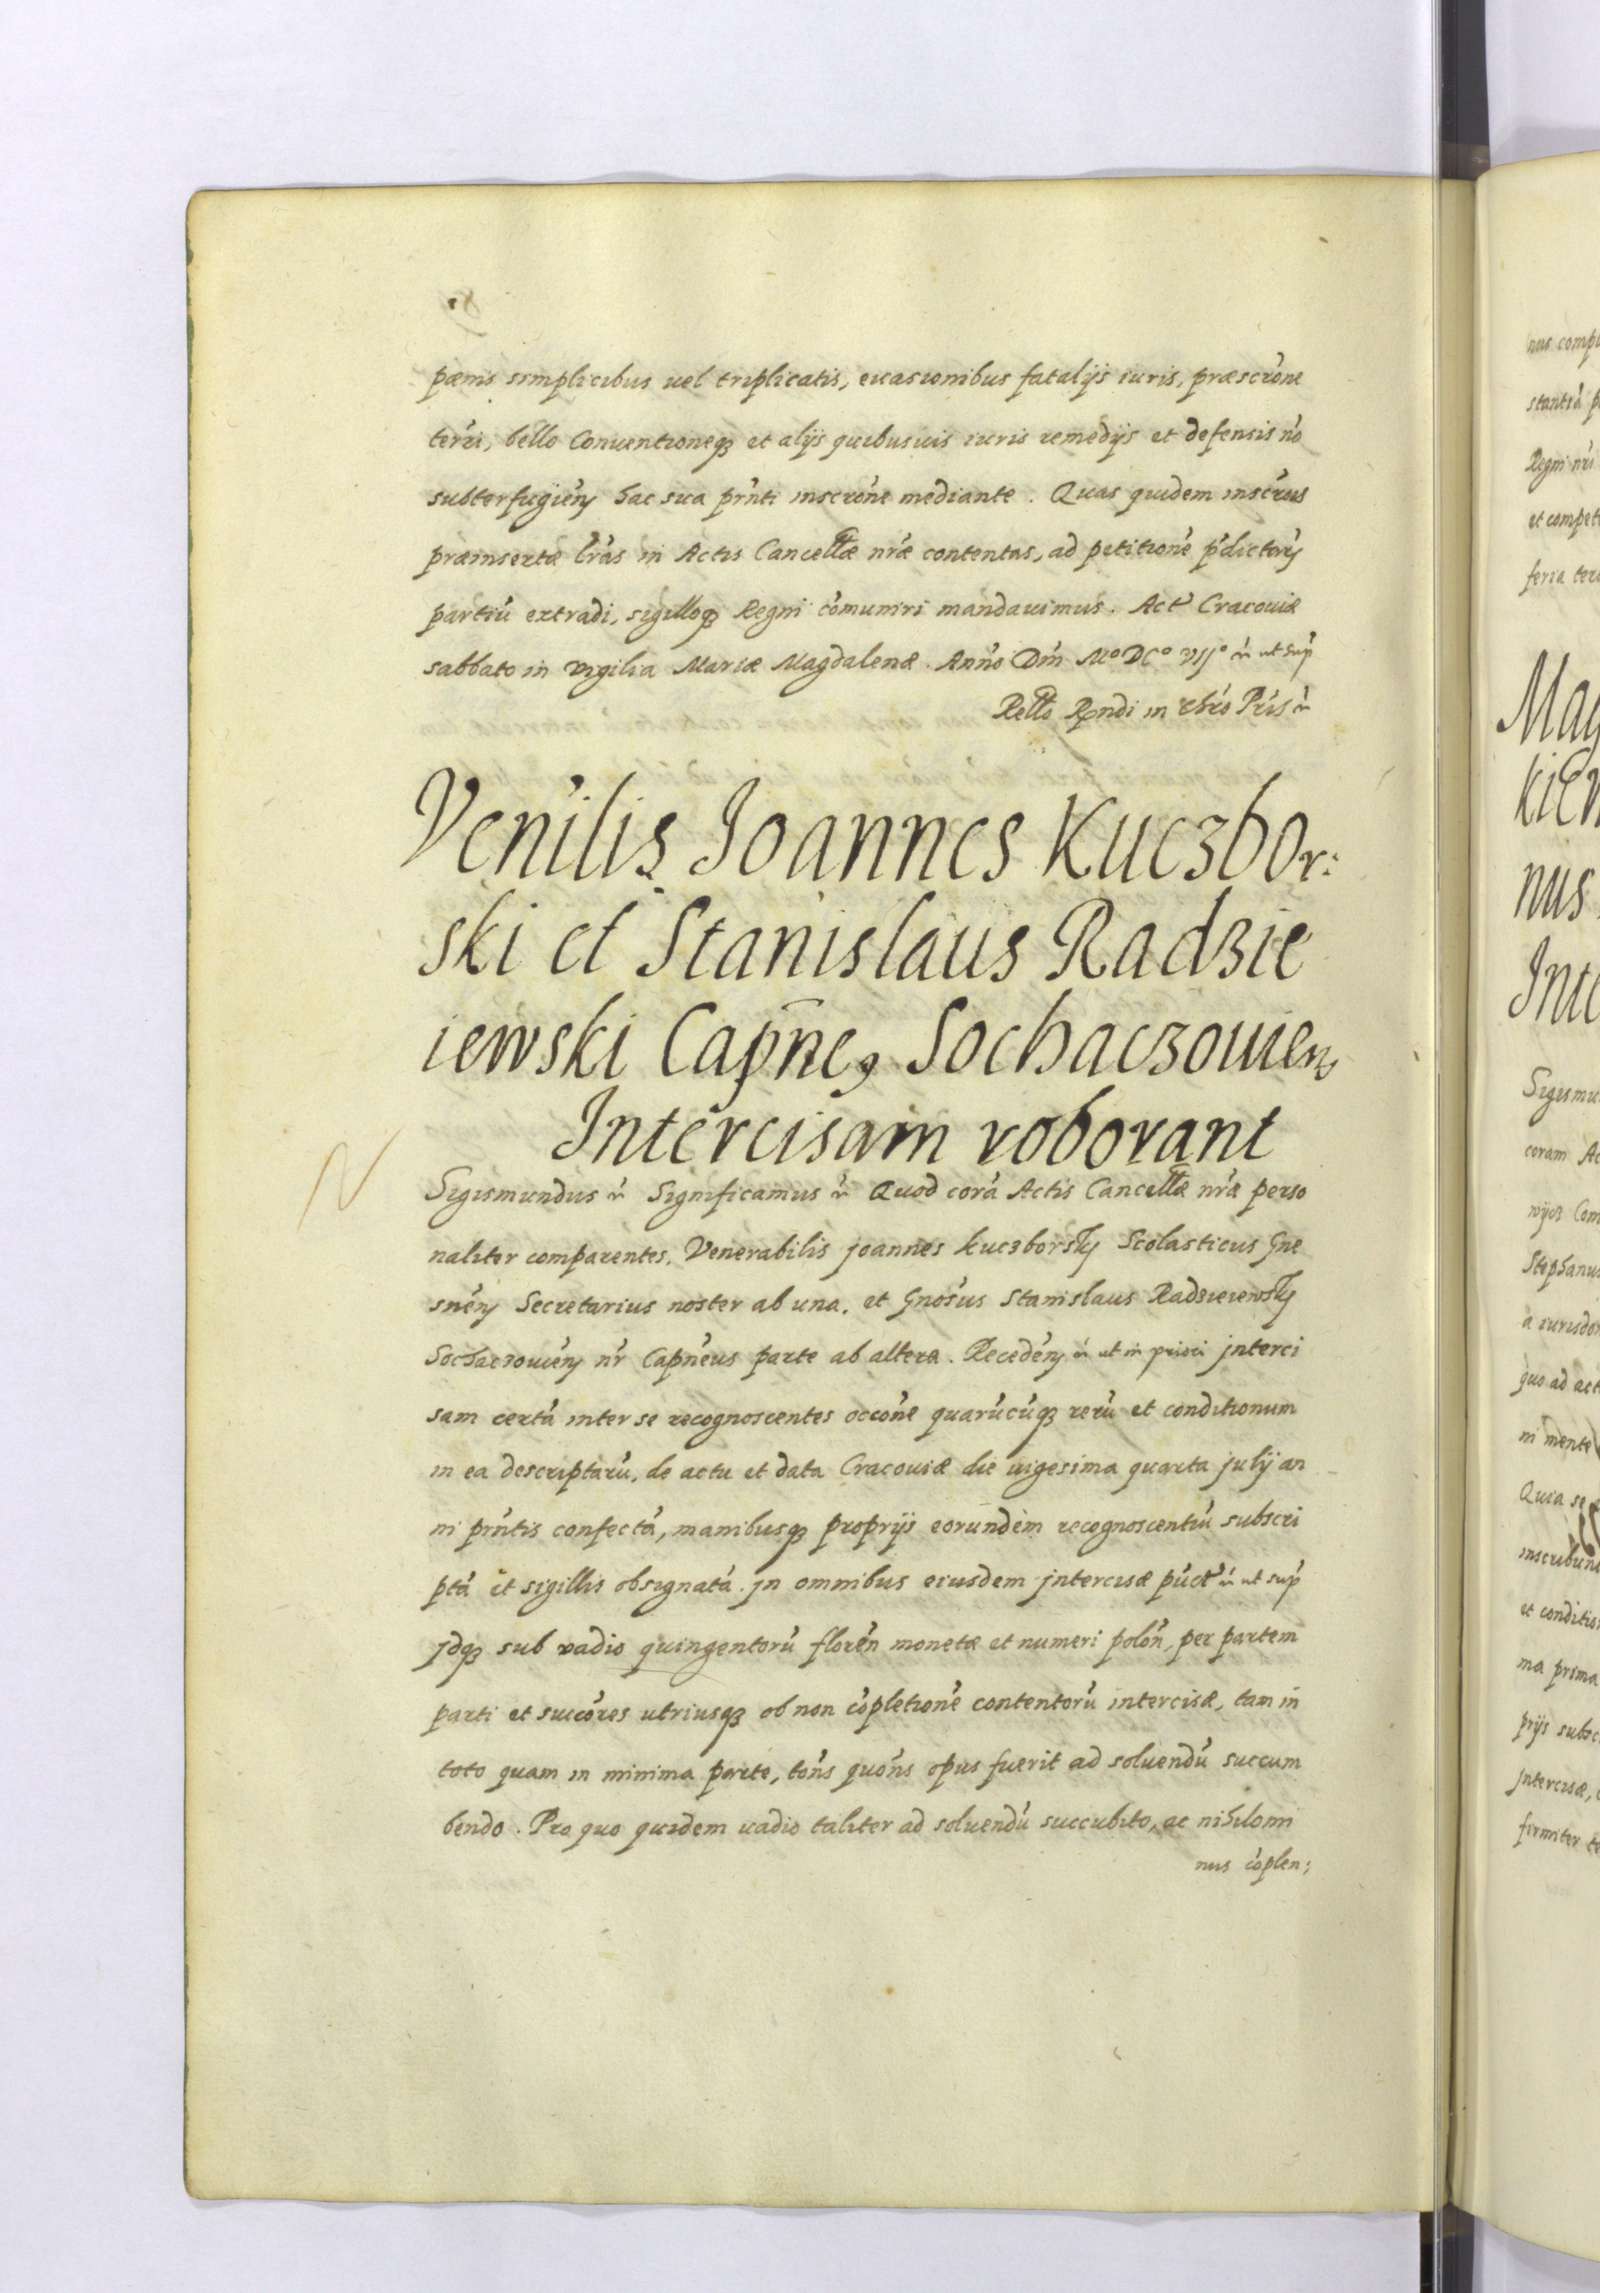 pœnis simplicibus uel triplicatis, euasionibus fatalijs iuris, præscrõne
terr̃i, bello Conuentioneqȝ et alijs quibusuis iuris remedijs et defensis nõ
subterfugieñ hac sua prñti inscrõne mediante. Quas quidem inscr̃us
præinsertæ lr̃as in Actis Cancellæ nr̃æ contentas, ad petitionẽ p̃dictorũ
partiũ extradi, sigilloqȝ Regni cõmuniri mandauimus. Act̃ Cracouiæ
sabbato in vigilia Mariæ Magdalenæ. Anno Dñi Mº DCº VIIº ut sup̃
Rello Rṇdi in chr̃o Pr̃is
Veñilis Joannes Kuczbor:
ski et Stanislaus Radzie
iewski Capñe9 Sochaczouien
Intercisam roborant
Sigismundus Significamus Quod corã Actis Cancellæ nr̃æ perso
naliter comparentes, Venerabilis Joannes Kuczborsky Scolasticus Gne
snẽn Secretarius noster ab una, et Gnosus Stanislaus Radzieiewsky
Sochaczouiẽn nr̃ Capñeus parte ab altera. Recedẽn ut in priori interci
sam certã inter se recognoscentes occõne quarũcũqȝ rerũ et conditionum
in ea descriptarũ, de actu et data Cracouiæ die uigesima quarta julij an
ni prñtis confectã, manibusqȝ proprijs eorundem recognoscentiũ subscri
ptã et sigillis obsignatã. Jn omnibus eiusdem jntercisæ pũct̃ ut sup̃
Jdqȝ sub vadio quingentorũ florẽn monetæ et numeri polõn, per partem
parti et succõres utriusqȝ ob non cõpletionẽ contentorũ intercisæ, tam in
toto quam in minima parte, tõns quõns opus fuerit ad soluendũ succum
bendo. Pro quo quidem uadio taliter ad soluendũ succubito, ac nihilomi
nus cõplen: